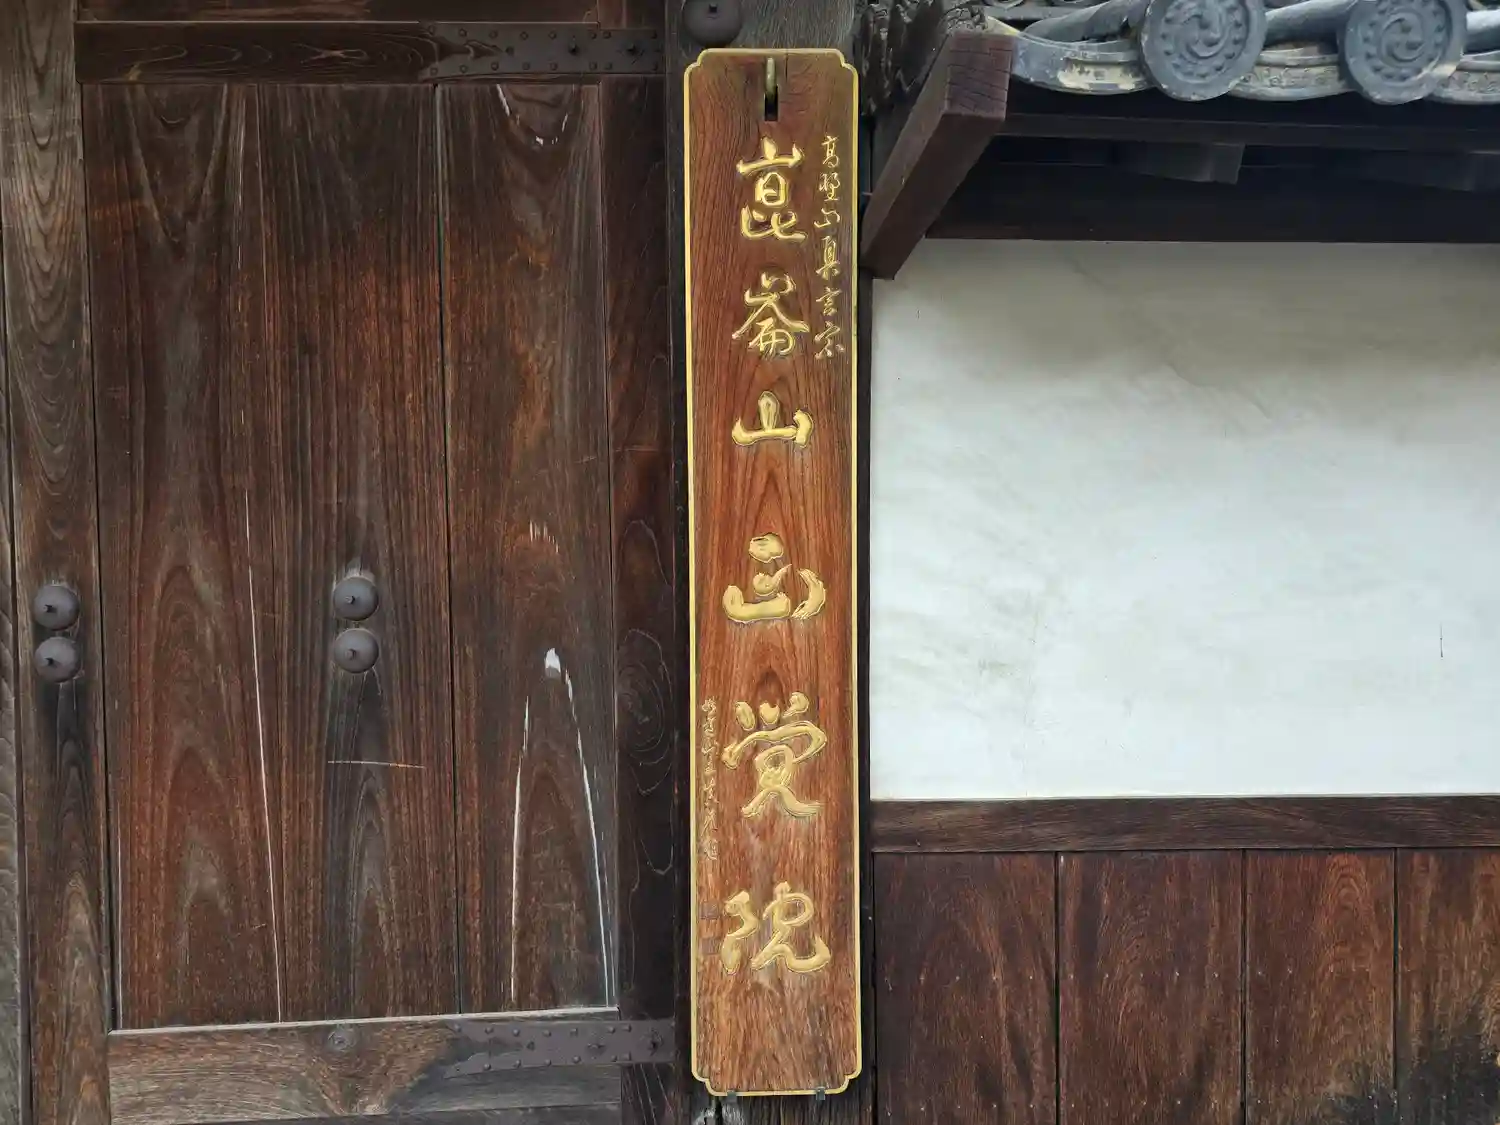 高野山真言宗
崑崙山正覚院